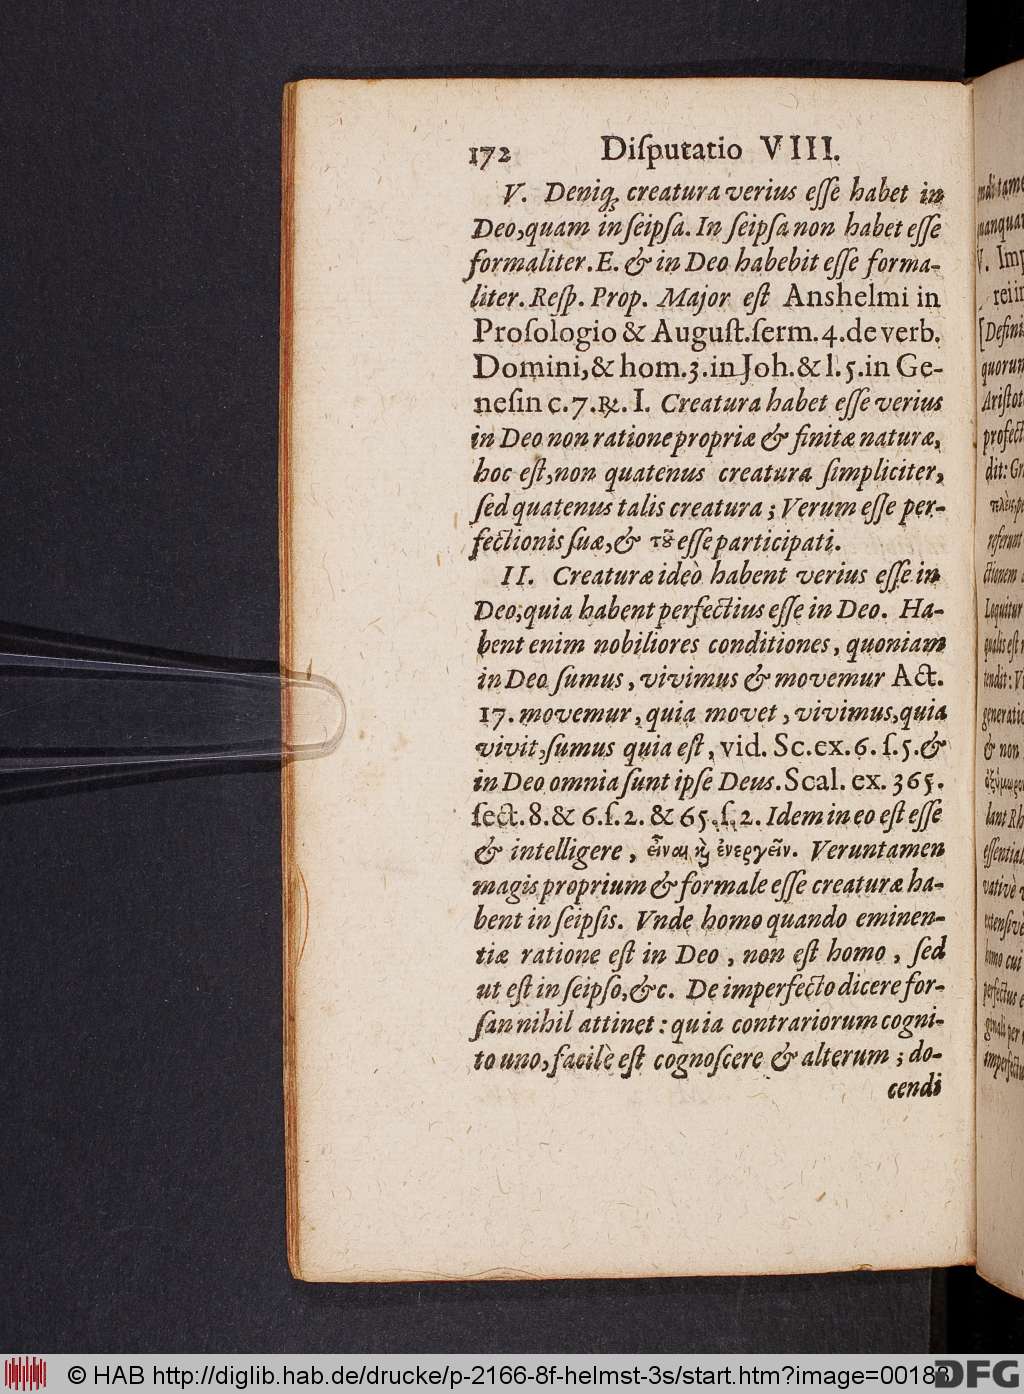 172 Diſputatio VIII.
V. Deniq; creatura verius eſſe habet in
Deo, quam in ſeipſa. In ſeipſa non habet eſſe
formaliter. E. & in Deo habebit eſſe forma-
liter. Reſp. Prop. Major eſt Anshelmi in
Proſologio & Auguſt. ſerm. 4. de verb.
Domini, & hom. 3. in Joh. & l. 5. in Ge-
neſin c. 7. ℞. I. Creatura habet eſſe verius
in Deo non ratione propriæ & finitæ naturæ,
hoc eſt, non quatenus creatura ſimpliciter,
ſed quatenus talis creatura; Verum eſſe per-
fectionis ſuæ, & τȣ͂ eſſe participati.
II. Creaturæ ideò habent verius eſſe in
Deo, quia habent perfectius eſſe in Deo. Ha-
bent enim nobiliores conditiones, quoniam
in Deo ſumus, vivimus & movemur Act.
17. movemur, quia movet, vivimus, quia
vivit, ſumus quia eſt, vid. Sc. ex. 6. ſ. 5. &
in Deo omnia ſunt ipſe Deus. Scal. ex. 365.
ſect. 8. & 6. ſ. 2. & 65. ſ. 2. Idem in eo eſt eſſe
& intelligere, εἶναι ϗ̀ ἐνεργεῖν. Veruntamen
magis proprium & formale eſſe creaturæ ha-
bent in ſeipſis. Vnde homo quando eminen-
tiæ ratione eſt in Deo, non eſt homo, ſed
ut eſt in ſeipſo, &c. De imperfecto dicere for-
ſan nihil attinet: quia contrariorum cogni-
to uno, facilè eſt cognoſcere & alterum; do-
cendi
© HAB http://diglib.hab.de/drucke/p-2166-8f-helmst-3s/start.htm?image=00188
DFG